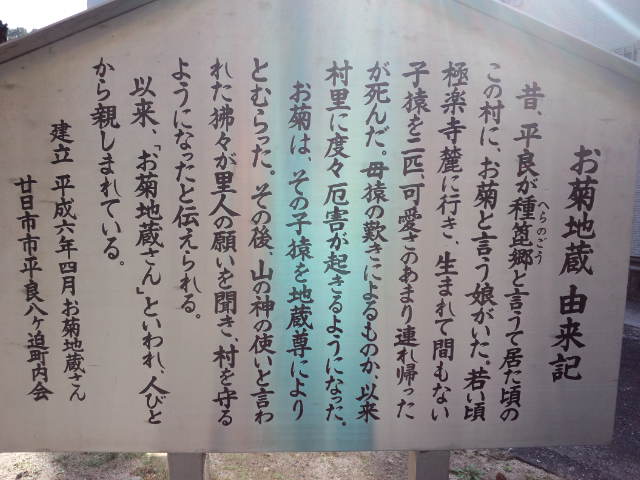 お菊地蔵 由来記
昔、平良が種箆郷と言うて居た頃の
へらのごう
この村に、お菊と言う娘がいた。若い頃
極楽寺麓に行き、生まれて間もない
子猿を二匹、可愛さのあまり連れ帰った
が死んだ。母猿の歎きによるものか、以来
村里に度々厄害が起きるようになった。
お菊は、その子猿を地蔵尊により
とむらった。その後、山の神の使いと言わ
れた狒々が里人の願いを聞き、村を守る
ようになったと伝えられる。
以来、「お菊地蔵さん」といわれ、人びと
から親しまれている。
建立 平成六年四月 お菊地蔵さん
廿日市市平良八ヶ迫町内会